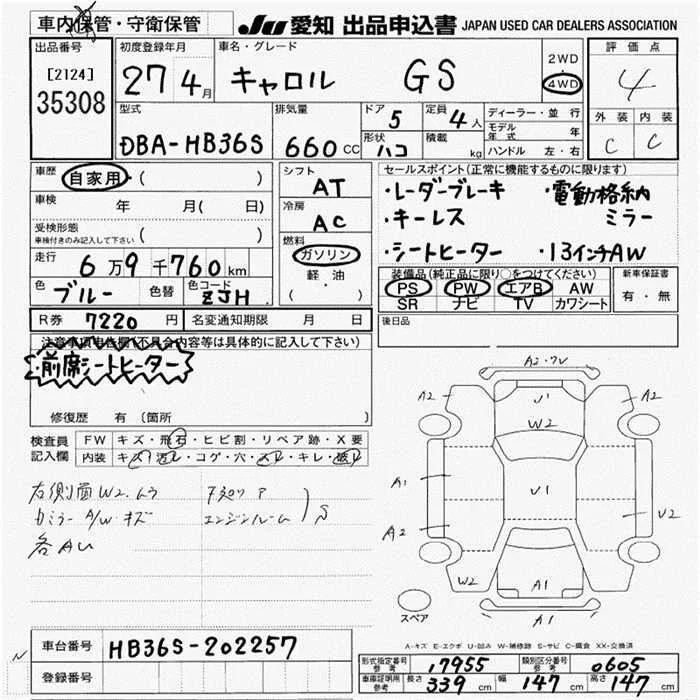 車内保管・守衛保管
JU 愛知 出品申込書 JAPAN USED CAR DEALERS ASSOCIATION
出品番号
[2124]
35308
初度登録年月
27 4月
車名・グレード
キャロル GS
2WD
4WD
評価点
4
外装 内装
C C
型式
DBA-HB36S
排気量
660cc
ドア 5
形状 ハコ
定員 4人
積載 kg
ディーラー・並行
モデル年式 年
ハンドル 左・右
車歴
自家用・( )
車検 年 月( 日)
受検形態
車検付きのみ記入して下さい ( )
走行
6万9千760km
色 ブルー 色替 色コード ZJH
シフト
AT
冷房
AC
燃料
ガソリン
軽油
( ・ )
セールスポイント(正常に機能するものに限ります)
・レーダーブレーキ ・電動格納
・キーレス ミラー
・シートヒーター ・13インチAW
装備品(純正品に限り○をつけてください)
PS PW エアB AW
SR ナビ TV カワシート
新車保証書
有・無
R券 7220円 名変通知期限 月 日
後日品
注意事項申告欄(不具合内容等は具体的に記入して下さい)
・前席シートヒーター
修復歴 有 〔箇所 〕
検査員記入欄
FW キズ・飛石・ヒビ割・リペア跡・X要
内装 キズ・汚レ・コゲ・穴・スレ・キレ・破レ
右側面W2.ムラ
カミラー A/W.キズ
エンジンルーム S
各AU
A2・フV
A2 U1 A2
W2
A1 U1
A2 U2
W2 A1
A1
スペア
A-キズ E-エクボ U-凹み W-補修跡 S-サビ C-腐食 XX-交換済
車台番号 HB36S-202257
登録番号
N
形式指定番号 参考 17955 類別区分番号 参考 0605
車庫証明用 参考 長さ 339cm 幅 147cm 高さ 147cm